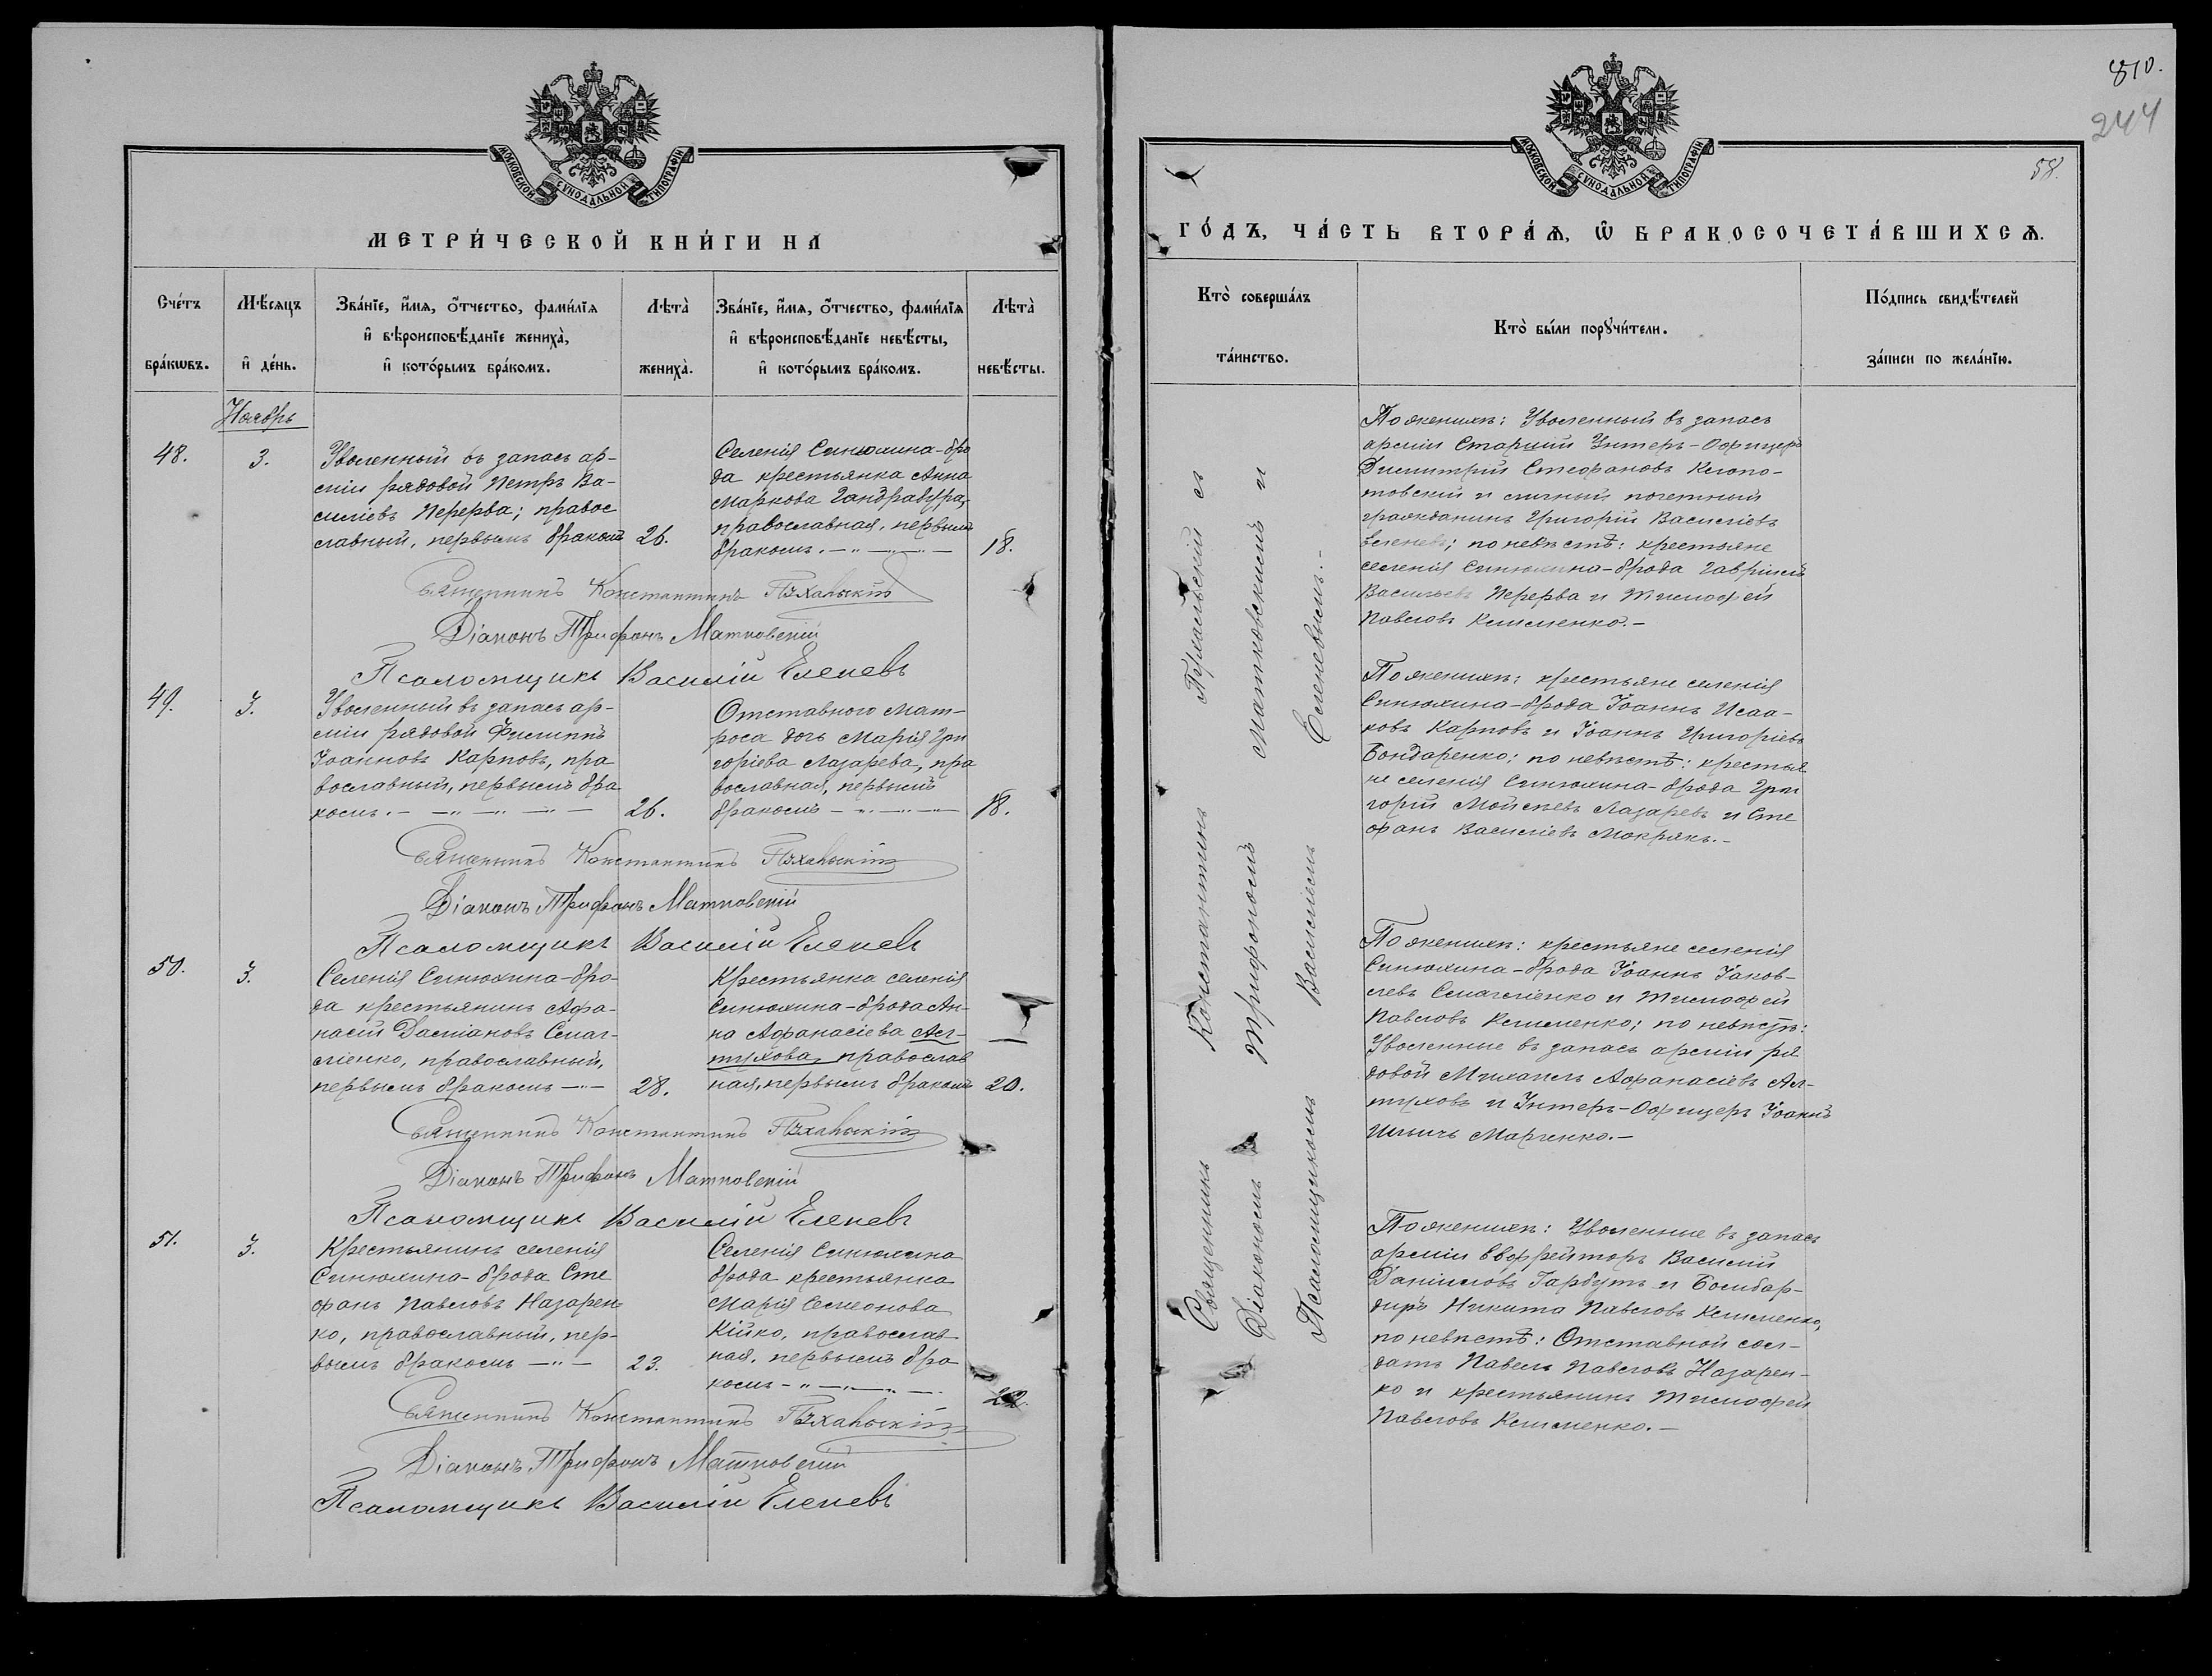 МОСКОВСКОЙ СѴНОДАЛЬНОЙ ТИПОГРАФІИ
МЕТРИ́ЧЕСКОЙ КНИ́ГИ НА
Сче́тъ бра́кωвъ.
Мѣ́сяцъ и҆ де́нь.
Зва́нїе, и҆́мѧ, ѻ҆́тчество, фами́лїѧ
и҆ вѣроисповѣ́данїе женихà,
и҆ кото́рымъ бра́комъ.
Лѣтà женихà.
Зва́нїе, и҆́мѧ, ѻ҆́тчество, фами́лїѧ
и҆ вѣроисповѣ́данїе невѣ́сты,
и҆ кото́рымъ бра́комъ.
Лѣтà невѣ́сты.
Ноябрь
48.
3.
Уволенный въ запасъ ар-
міи рядовой Петръ Ва-
силіевъ Перерва; правос
лавный, первымъ бракомъ
26.
Селенія Синюхина-бро
да крестьянка Анна
Маркова Гандрабура,
православная, первымъ
бракомъ. — „ — „ —
18.
Священникъ Константинъ
Діаконъ Трифонъ Матковскій
Псаломщикъ Василій Еленевъ
49.
3.
Уволенный въ запасъ ар-
міи рядовой Филиппъ
Іоанновъ Карповъ, пра
вославный, первымъ бра
комъ. — — „ — „ — „ —
26.
Отставного мат-
роса дочь Марія Гри
горіева Лазарева, пра
вославная, первымъ
бракомъ — „ — „ —
18.
Священникъ Константинъ
Діаконъ Трифонъ Матковскій
Псаломщикъ Василій Еленевъ
50.
3.
Селенія Синюхина-бро-
да крестьянинъ Афа-
насій Даміановъ Смаг-
ліенко, православный,
первымъ бракомъ — „ —
28.
Крестьянка селенія
Синюхина-брода Ан-
на Афанасіева Ал-
тухова, православ
ная, первымъ бракомъ
20.
Священникъ Константинъ
Діаконъ Трифонъ Матковскій
Псаломщикъ Василій Еленевъ
51.
3.
Крестьянинъ селенія
Синюхина-брода Сте
фанъ Павловъ Назарен
ко, православный, пер-
вымъ бракомъ — „ —
23.
Селенія Синюхина
брода крестьянка
Марія Семеонова
Кійко, православ
ная, первымъ бра
комъ — „ — „ — „ —
22.
Священникъ Константинъ
Діаконъ Трифонъ Матковскій
Псаломщикъ Василій Еленевъ
810.
244
58.
МОСКОВСКОЙ СѴНОДАЛЬНОЙ ТИПОГРАФІИ
ГО́ДЪ, ЧА́СТЬ ВТОРА́Ѧ, Ѽ БРАКОСОЧЕТА́ВШИХСѦ.
Ктò соверша́лъ та́инство.
Ктò бы́ли порꙋчи́тели.
По́дпись свидѣ́телей за́писи по жела́нїю.
Священникъ Константинъ съ
Діакономъ Трифономъ Матковскимъ и
Псаломщикомъ Василіемъ Еленевымъ. -
По женихѣ: Уволенный въ запасъ
арміи Старшій Унтеръ-Офицеръ
Димитрій Стефановъ Клопо-
товскій и личный почетный
гражданинъ Григорій Василіевъ
Еленевъ; по невѣстѣ: крестьяне
селенія Синюхина-брода Гавріилъ
Васильевъ Перерва и Тимофей
Павловъ Клименко. —
По женихѣ: крестьяне селенія
Синюхина-брода Іоаннъ Исаа-
ковъ Карповъ и Іоаннъ Григоріевъ
Бондаренко; по невѣстѣ: крестья
не селенія Синюхина-брода Гри
горій Мойсѣевъ Лазаревъ и Сте
фанъ Василіевъ Мокрякъ. —
По женихѣ: крестьяне селенія
Синюхина-брода Іоаннъ Іаков-
левъ Смагліенко и Тимофей
Павловъ Клименко; по невѣстѣ:
Уволенные въ запасъ арміи ря
довой Михаилъ Афанасіевъ Ал-
туховъ и Унтеръ-Офицеръ Іоаннъ
Ильичъ Марченко. —
По женихѣ: Уволенные въ запасъ
арміи Ефрейторъ Василій
Даніиловъ Гарбузъ и Бомбар-
диръ Никита Павловъ Клименко,
по невѣстѣ: Отставной сол-
датъ Павелъ Павловъ Назарен-
ко и крестьянинъ Тимофей
Павловъ Клименко. —